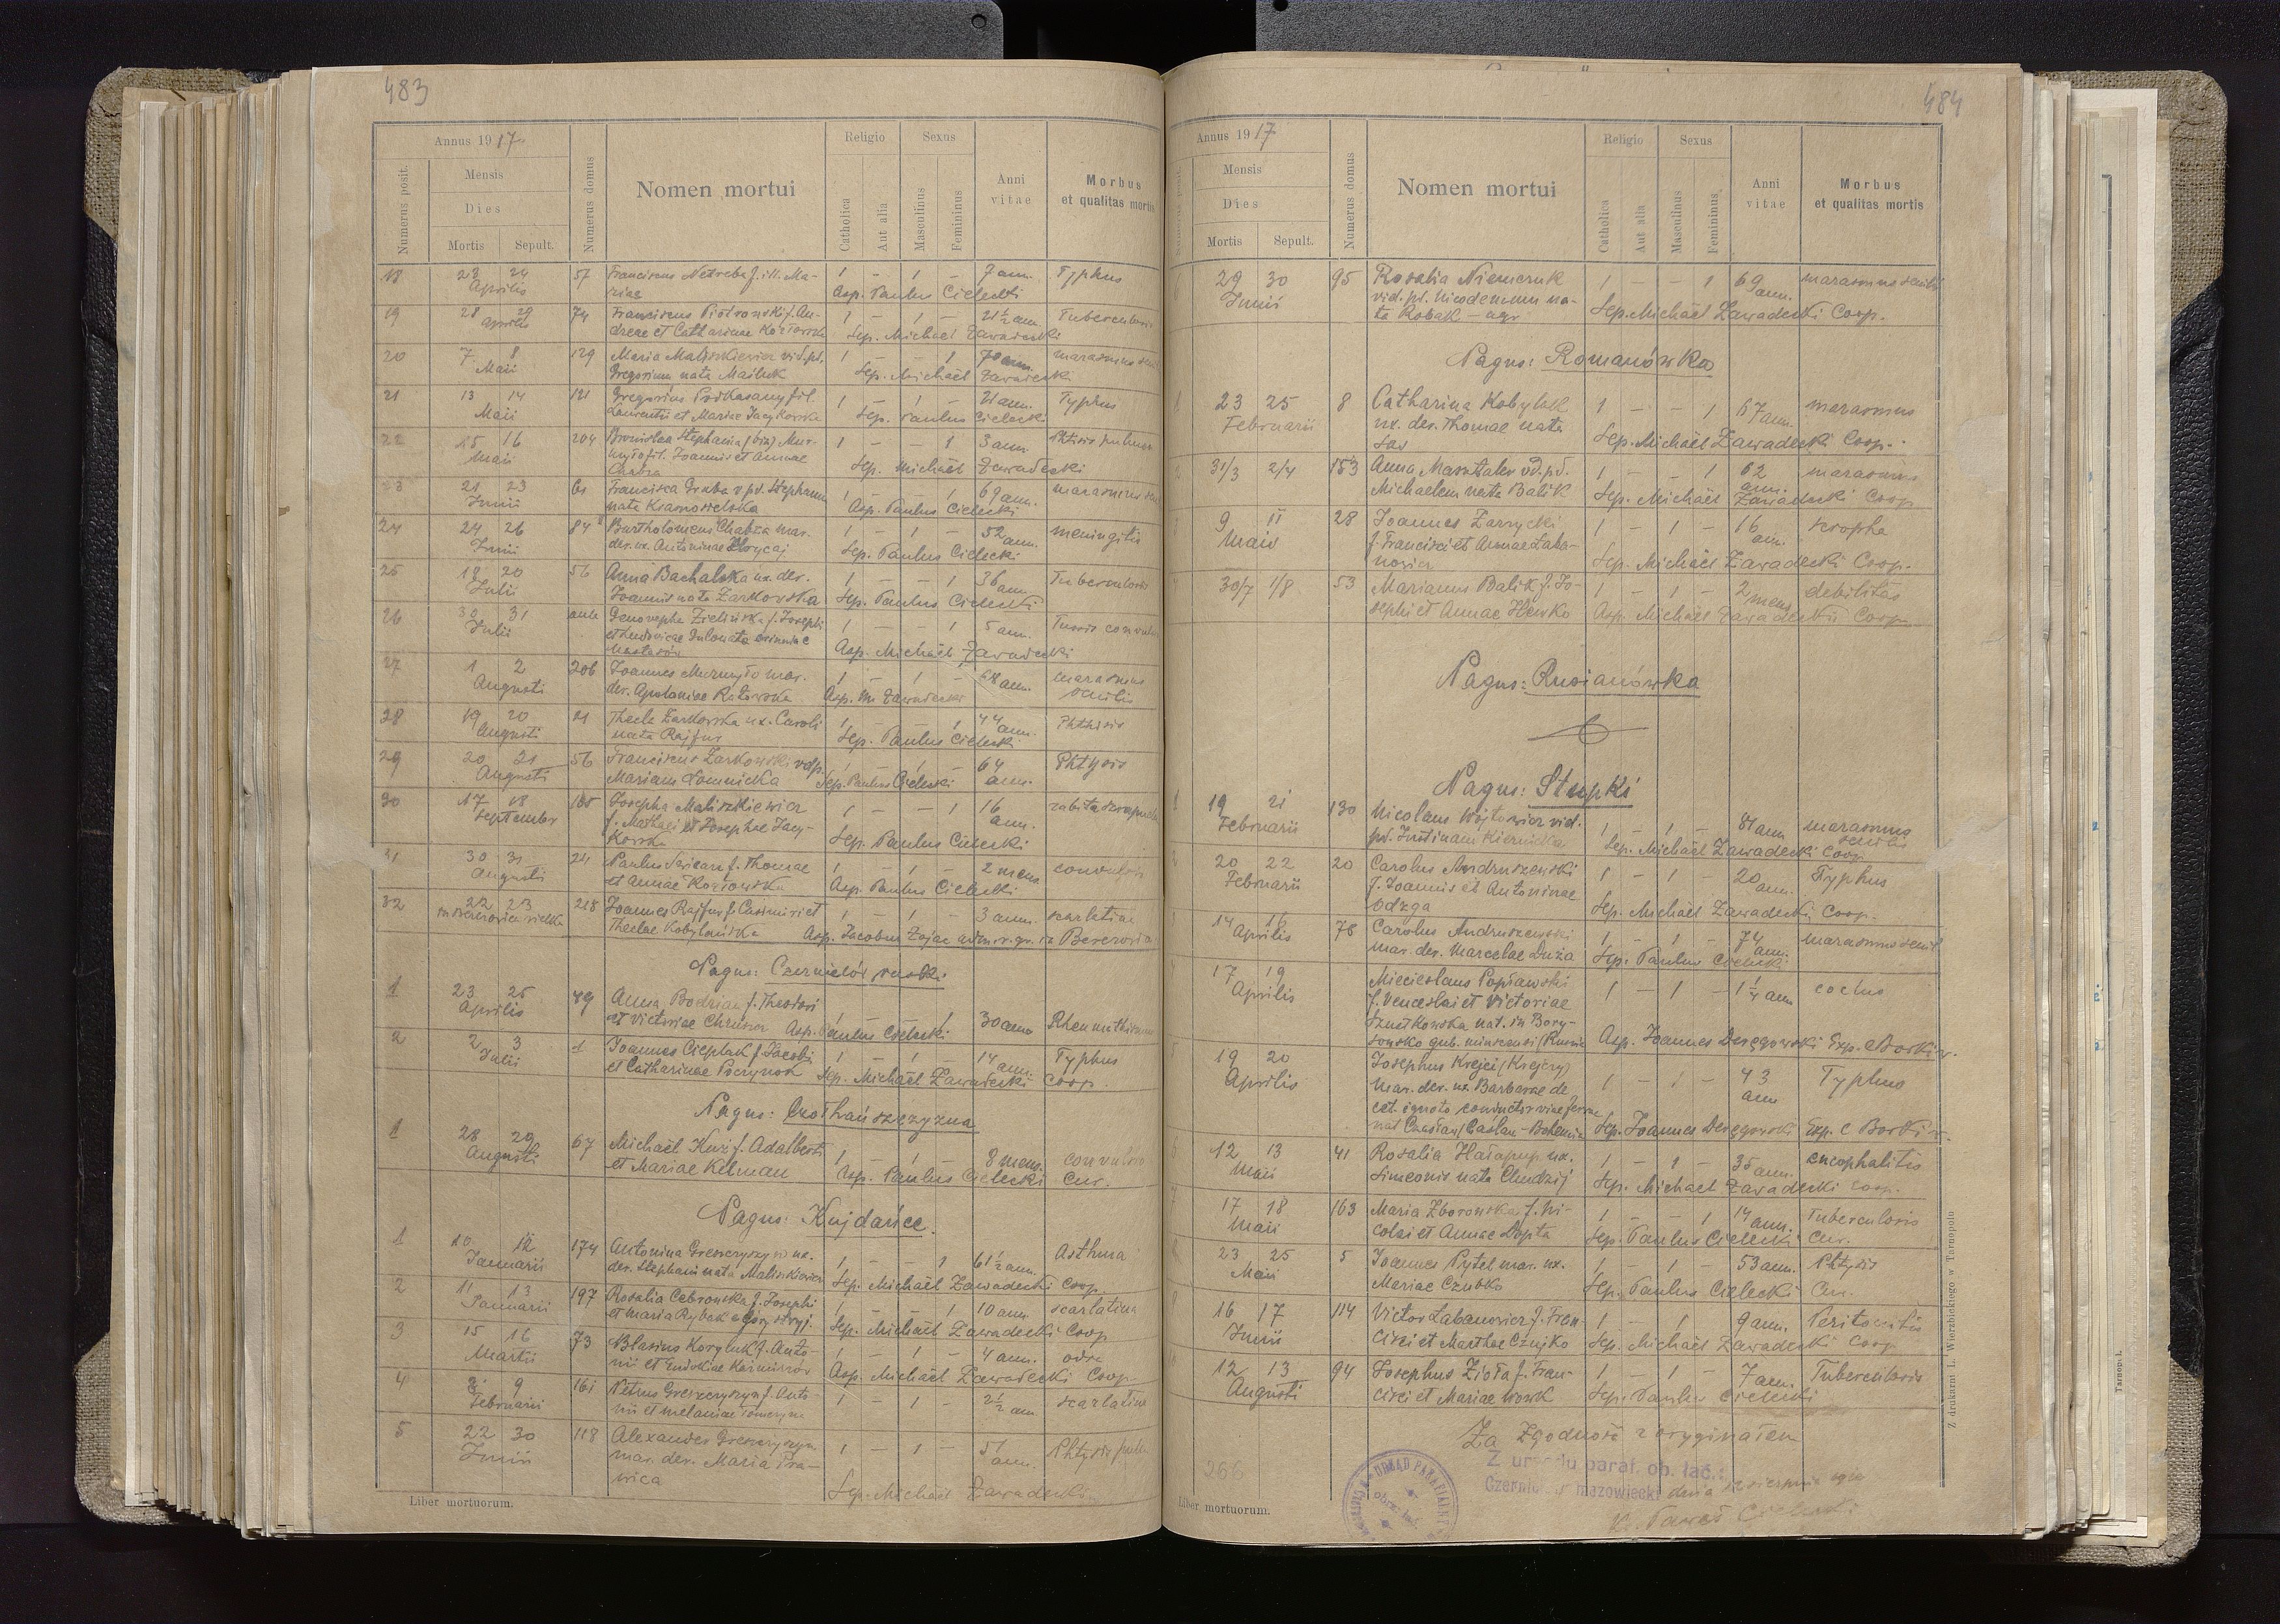 483
Annus 1917
Numerus posit.
Mensis
Dies
Mortis Sepult.
Numerus domus
Nomen mortui
Religio
Catholica
Aut alia
Sexus
Masculinus
Femininus
Anni vitae
Morbus et qualitas mortis
18 23 24 57 Franciscus Netreba f. ill. Ma- 1 - 1 - 7 ann. Typhus
Aprilis riae Asp. Paulus Cielecki
19 28 29 74 Franciscus Piotrowski f. An- 1 - 1 - 21½ ann. Tuberculosis
Aprilis dreae et Catharinae Kozłowska Sep. Michael Zawadecki
20 7 8 129 Maria Maliszkiewicz vid. p. 1 - - 1 70 ann. marasmus
Maii Gregorium nata Maśluk Sep. Michaël Zawadecki
21 13 14 121 Gregorius Podkasany fil. 1 - 1 - 21 ann. Typhus
Maii Laurentii et Mariae Jacykowska Sep. Paulus Cielecki
22 15 16 204 Bronislaa Stephania (bin) Mur- 1 - 1 3 ann. Phtisis pulmon
Maii mylo fil. Joannis et Annae Sep. Michaël Zawadecki
Chabza
23 21 23 61 Francisca Graba v. pd. Stephanum 1 - - 1 69 ann. marasmus
Junii nata Krasnosielska Asp. Paulus Cielecki
24 24 26 84 Bartholomeus Chabza mar. 1 - 1 - 52 ann. meningitis
Junii der. ux. Antoninae Hrycaj Sep. Paulus Cielecki
25 18 20 56 Anna Bachalska ux. der. 1 - - 1 36 ann. Tuberculosis
Julii Joannis nata Zarkowska Sep. Paulus Cielecki
26 30 31 Genovepha Zielińska f. Josephi 1 - - 1 5 ann. Tussis convuls
Julii et Ludovicae
Nastasów Asp. Michaël Zawadecki
27 1 2 206 Joannes Murmyło mar. 1 - 1 - 68 ann. marasmus
Augusti der. Apoloniae Ratowska Asp. M. Zawadecki senilis
28 19 20 21 Thecla Zarkowska ux. Caroli 1 - - 1 44 ann. Phthisis
Augusti nata Rajfur Sep. Paulus Cielecki
29 20 21 56 Franciscus Zarkowski vdp. 1 - 1 - 64 Phtysis
Augusti Mariam Łomnicka Sep. Paulus Cielecki ann.
30 17 18 165 Josepha Maliszkiewicz 1 - - 1 16
September f. Mathaei et Josephae Jacy- ann.
kowska Sep. Paulus Cielecki
31 30 31 24 Paulus f. Thomae 1 - 1 - 2 mens convulsio
Augusti et Annae Kozłowska Asp. Paulus Cielecki
32 22 23 218 Joannes Rajfur f. Casimiri et 1 - 1 - 3 ann. scarlatina
in Berezowica wielka Theclae Kobylańska Asp. Jacobus Zając in Berezovica
Pagus: Czernielów rusk.
1 23 25 49 Anna Bodzian f. Theodosi 1 - - 1 30 ann Rheumathismus
Aprilis et Victoriae Asp. Paulus Cielecki
2 2 3 1 Joannes Cieplak f. Jacobi 1 - 1 - 14 Typhus
Julii et Catharinae Sep. Michaël Zawadecki Coop. ann.
Pagus: Chothańszczyzna
1 28 29 67 Michaël Kuź f. Adalberti 1 - 1 - 8 mens. convulsio
Augusti et Mariae Kilman Asp. Paulus Cielecki Cur.
Pagus: Kujdańce.
1 10 12 174 Antonina Greszczyszyn ux. 1 - - 1 61½ ann. Asthma
Januarii der. Stephani nata Maliszkiewicz Sep. Michaël Zawadecki Coop.
2 11 13 197 Rosalia Cebrowska f. Josephi 1 - - 1 10 ann. scarlatina
Januarii et Maria Rybak Sep. Michaël Zawadecki Coop
3 15 16 73 Blasius Koryluk f. Anto- 1 - 1 - 4 ann. odra
Martii nii et Eudokiae Kazimirów Asp. Michaël Zawadecki Coop.
4 8 9 161 Petrus Greszczyszyn f. Anto- 1 - 1 - 2½ ann. scarlatina
Februarii nii et Melaniae
5 22 30 118 Alexander Greszczyszyn 1 - 1 - 51 Phtysis pulm
Junii mar. der. Maria Pra- ann.
wica Sep. Michaël Zawadecki
Liber mortuorum.
484
Annus 1917
Mensis
Dies
Mortis Sepult.
Numerus domus
Nomen mortui
Religio
Catholica
Aut alia
Sexus
Masculinus
Femininus
Anni vitae
Morbus et qualitas mortis
29 30 95 Rosalia Niemczuk 1 - - 1 69 marasmus senilis
Junii vid. pd. Nicodemum na- ann.
ta Robak - agr Sep. Michaël Zawadecki Coop.
Pagus: Romanówka
23 25 8 Catharina Kobylak 1 - - 1 67 ann. marasmus
Februarii ux. der. Thomae nata
Sas Sep. Michaël Zawadecki Coop.
31/3 2/4 153 Anna Marszalec vd. pd. 1 - - 1 62 marasmus
Michaelem nata Balik Sep. Michaël Zawadecki Coop ann.
9 11 28 Joannes Zarzycki 1 - 1 - 16 scropha
Maii f. Francisci et Annae Łaba- ann.
nowicz Sep. Michaël Zawadecki Coop.
30/7 1/8 53 Marianus Balik f. Jo- 1 - 1 - 2 mens debilitas
sephi et Annae Hewko Asp. Michaël Zawadecki Coop
Pagus: Rusianówka
Pagus: Stupki
1 19 21 130 Nicolaus Wójtowicz vid. 1 - 1 - 81 ann marasmus
Februarii pd. Justinam Kiernicka Sep. Michaël Zawadecki Coop senilis
20 22 20 Carolus Andruszewski 1 - 1 - 20 ann. Typhus
Februarii f. Joannis et Antoninae
Odzga Sep. Michaël Zawadecki Coop.
14 16 78 Carolus Andruszewski 1 - 1 - 74 ann. marasmus senil
Aprilis mar. der. Marcelae Duża Sep. Paulus Cielecki
17 19 Miecieslaus Popławski 1 - 1 - 1¼ ann coclus
Aprilis f. Venceslai et Victoriae
Sznetkowska nat. in Bory-
sowsko gub. minscensi (Russia Asp. Joannes Deręgowski Exp. c Borkiw.
19 20 Josephus Krejci (Krejczy) 1 - 1 - 43 Typhus
Aprilis mar. der. ux. Barbarae de ann
cet. ignoto conductor viae ferrae
nat Czasław/Caslau-Bohemia Sep. Joannes Deręgowski Exp. c Borkiw.
12 13 41 Rosalia Harapup ux. 1 - 1 - 35 ann. encephalitis
Maii Simeonis nata Chudzij Sep. Michaël Zawadecki Coop.
7 17 18 163 Maria Zborowska f. Ni- 1 - - 1 14 ann. Tuberculosis
Maii colai et Annae Łopta Sep. Paulus Cielecki Cur.
23 25 5 Joannes Pytel mar. ux. 1 - 1 - 53 ann. Phtysis
Maii Mariae Czubko Sep. Paulus Cielecki Cur.
16 17 114 Victor Łabanowicz f. Fran- 1 - 1 9 ann. Peritonitis
Junii cisci et Marthae Czujko Sep. Michaël Zawadecki Coop
12 13 94 Josephus Zioła f. Fran- 1 - 1 - 7 ann. Tuberculosis
Augusti cisci et Mariae Wowk Sep. Paulus Cielecki
Za zgodność z oryginałem
Z urzędu paraf. ob. łac.
Czernielów mazowiecki dnia
X. Paweł Cielecki
URZĄD PARAFIALNY
obrz. łać.
266
Liber mortuorum.
Z drukarni L. Wierzbickiego w Tarnopolu
Tarnopol.